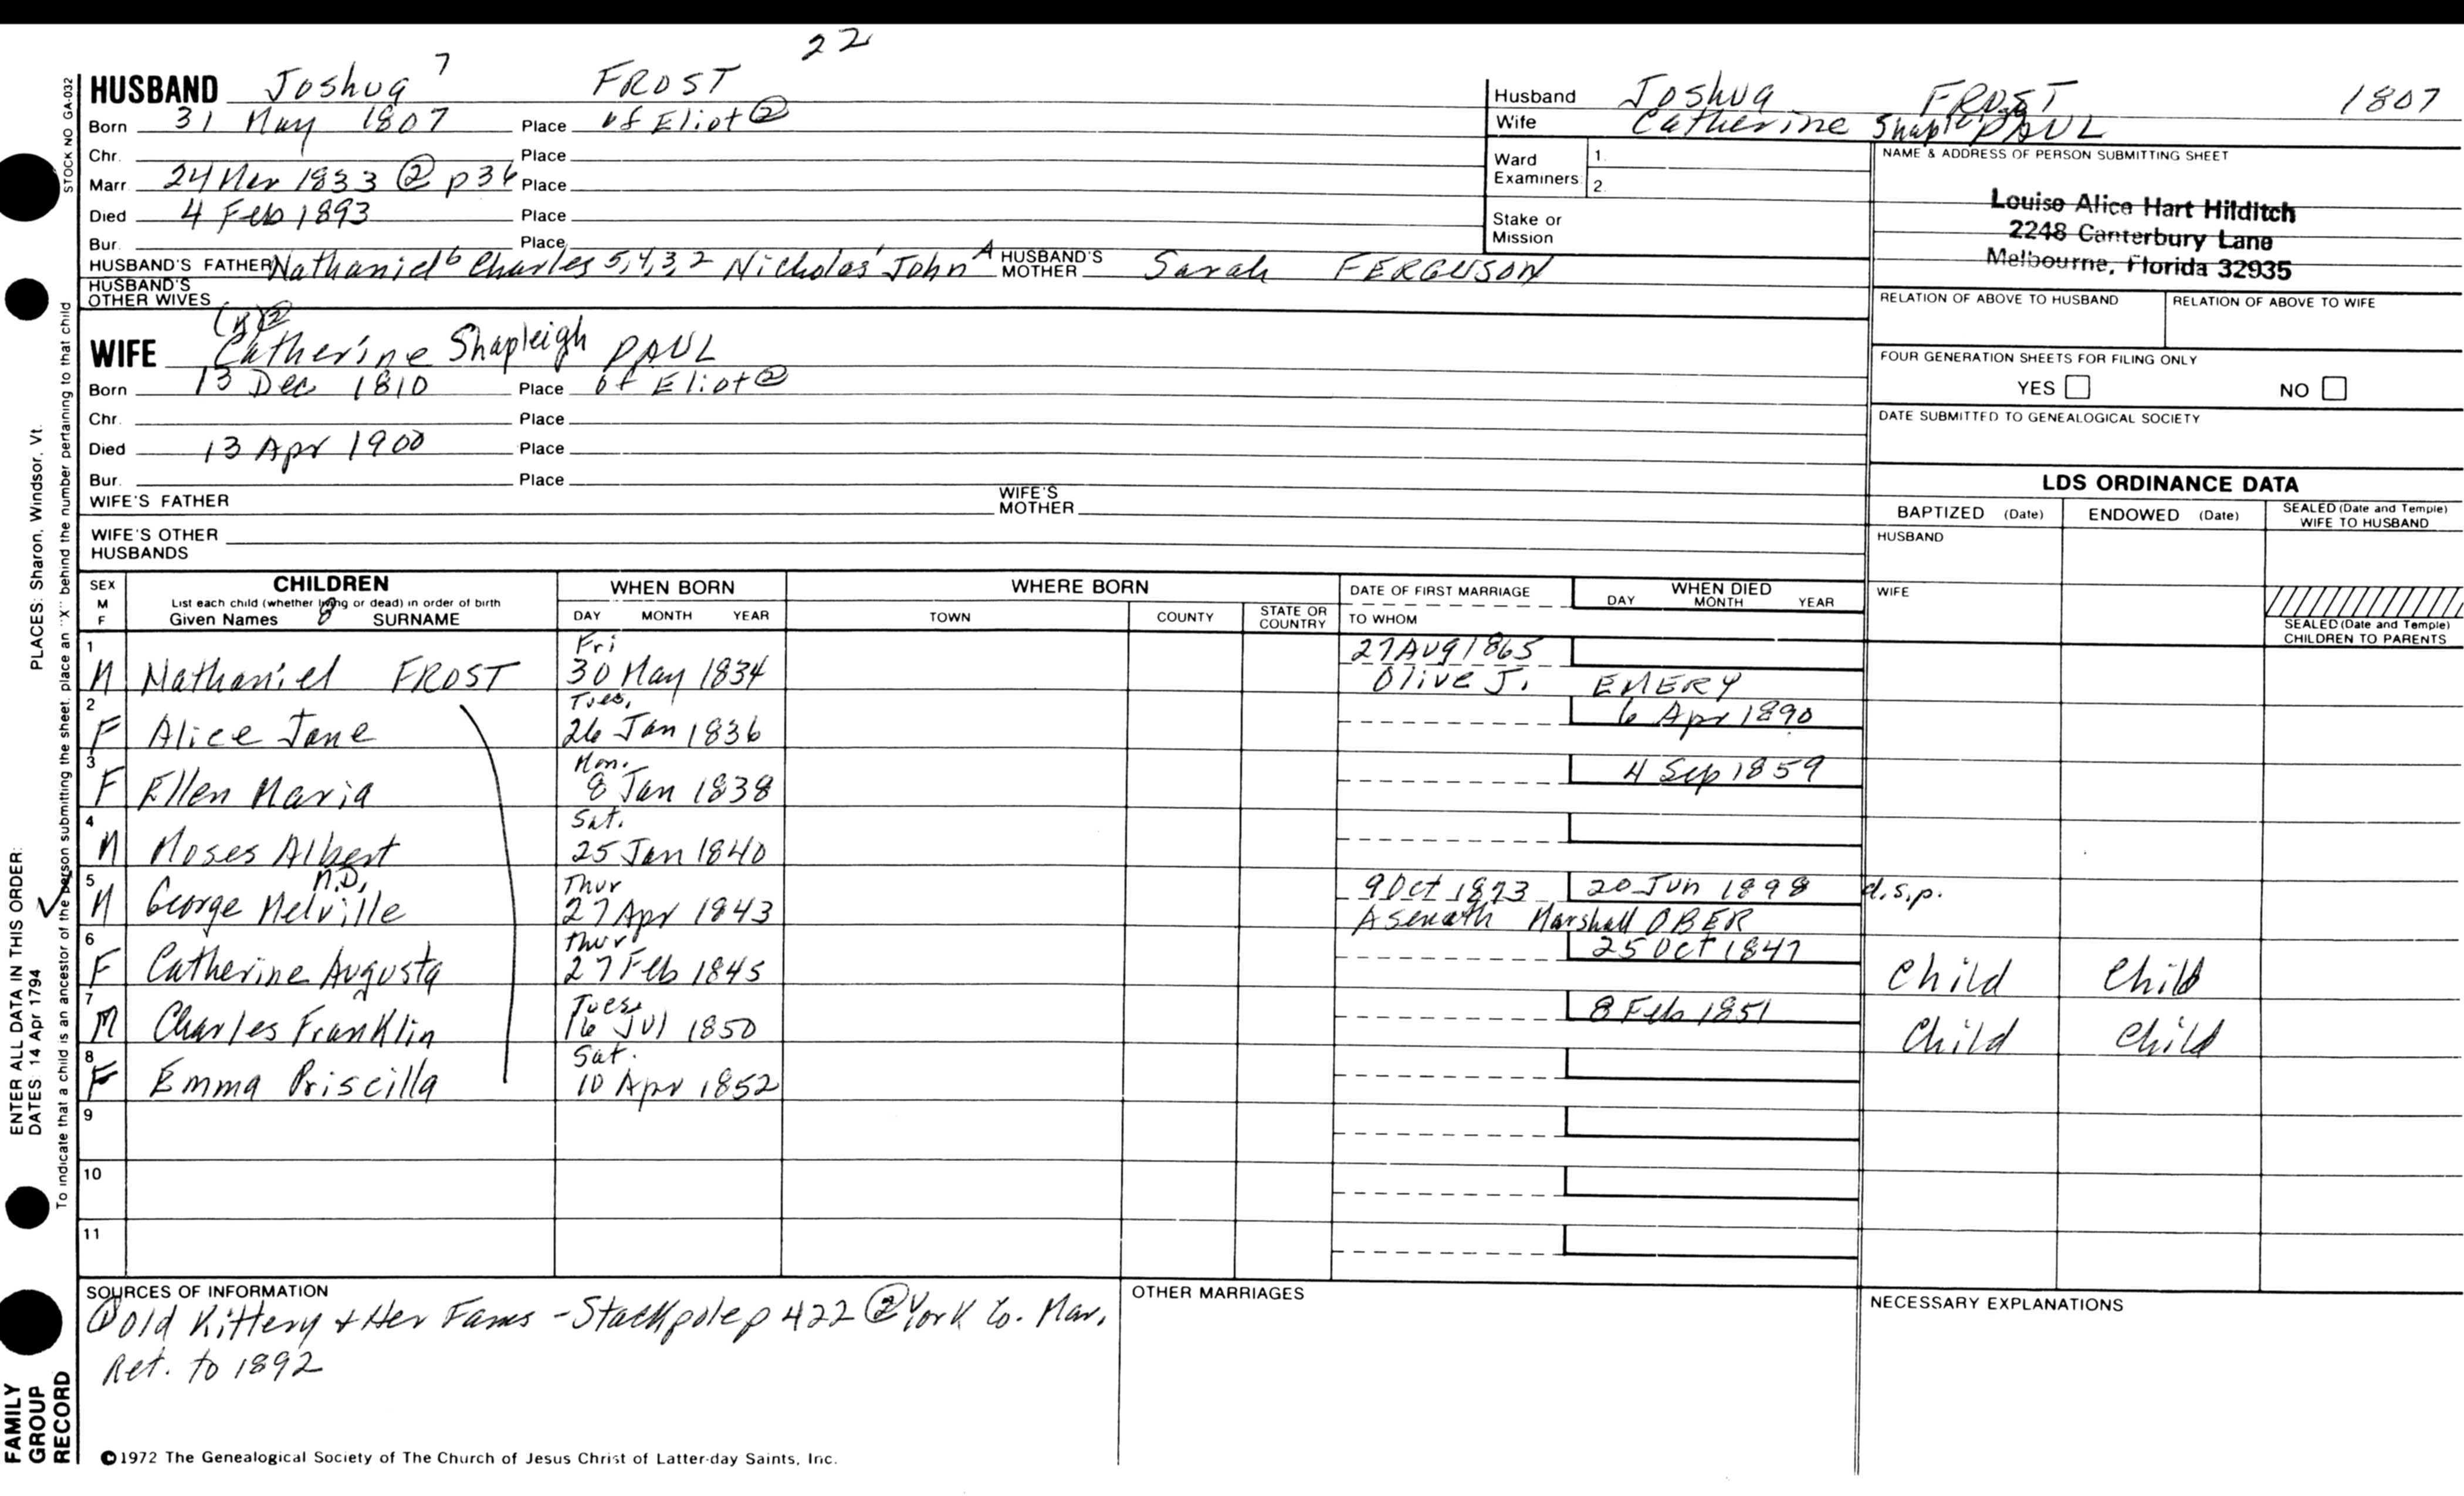 22
HUSBAND Joshua 7 FROST
Born 31 May 1807 Place of Eliot ②
Chr. Place
Marr. 24 Nov 1833 ② p36 Place
Died 4 Feb 1893 Place
Bur. Place
HUSBAND'S FATHER Nathaniel 6 Charles 5,4,3,2 Nicholas 1 John A HUSBAND'S MOTHER Sarah FERGUSON
HUSBAND'S OTHER WIVES
WIFE Catherine Shapleigh PAUL
Born 13 Dec 1810 Place of Eliot ②
Chr. Place
Died 13 Apr 1900 Place
Bur. Place
WIFE'S FATHER WIFE'S MOTHER
WIFE'S OTHER HUSBANDS
Husband Joshua FROST 1807
Wife Catherine Shaple PAUL
Ward Examiners 1. 2.
Stake or Mission
NAME & ADDRESS OF PERSON SUBMITTING SHEET
Louise Alice Hart Hilditch
2248 Canterbury Lane
Melbourne, Florida 32935
RELATION OF ABOVE TO HUSBAND RELATION OF ABOVE TO WIFE
FOUR GENERATION SHEETS FOR FILING ONLY
YES NO
DATE SUBMITTED TO GENEALOGICAL SOCIETY
LDS ORDINANCE DATA
BAPTIZED (Date) ENDOWED (Date) SEALED (Date and Temple) WIFE TO HUSBAND
HUSBAND
WIFE
SEALED (Date and Temple) CHILDREN TO PARENTS
SEX M F
CHILDREN
List each child (whether living or dead) in order of birth
Given Names 8 SURNAME
WHEN BORN
DAY MONTH YEAR
WHERE BORN
TOWN COUNTY STATE OR COUNTRY
DATE OF FIRST MARRIAGE
TO WHOM
WHEN DIED
DAY MONTH YEAR
1 M Nathaniel FROST Fri 30 May 1834 27 Aug 1865
Olive J. EMERY
2 F Alice Jane Tues. 26 Jan 1836 6 Apr 1890
3 F Ellen Maria Mon. 8 Jan 1838 4 Sep 1859
4 M Moses Albert Sat. 25 Jan 1840
5 M George Melville M.D. Thur 27 Apr 1843 9 Oct 1873 20 Jun 1898 d.s.p.
Asenath Marshall OBER
6 F Catherine Augusta Thur 27 Feb 1845 25 Oct 1847 Child Child
7 M Charles Franklin Tues. 16 Jul 1850 8 Feb 1851 Child Child
8 F Emma Priscilla Sat. 10 Apr 1852
9
10
11
SOURCES OF INFORMATION
① Old Kittery + Her Fams - Stackpole p 422 ② York Co. Mar.
Ret. to 1892
OTHER MARRIAGES
NECESSARY EXPLANATIONS
©1972 The Genealogical Society of The Church of Jesus Christ of Latter-day Saints, Inc.
STOCK NO GA-032
ENTER ALL DATA IN THIS ORDER:
DATES: 14 Apr 1794 PLACES: Sharon, Windsor, Vt.
To indicate that a child is an ancestor of the person submitting the sheet, place an "X" behind the number pertaining to that child
FAMILY
GROUP
RECORD